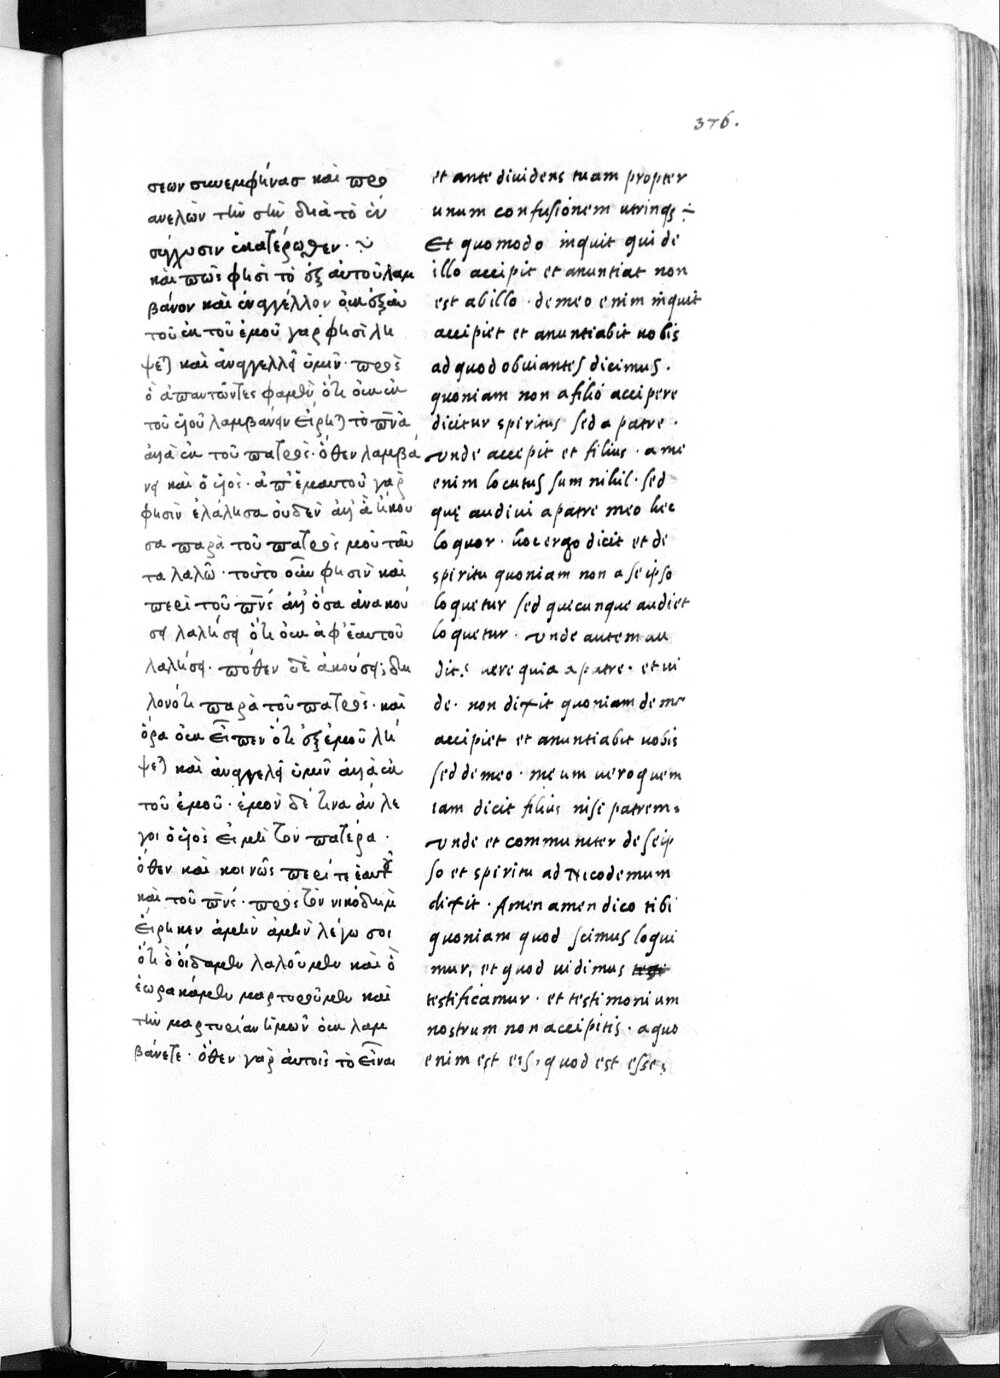 376.
σεων συνεμφήνασ καὶ προ
ανελὼν τὴν σὴν διὰ τὸ ἓν
σύγχυσιν ἑκατέρωθεν ·
καὶ πῶς φησὶ τὸ ἐξ αὐτοῦ λαμ
βάνον καὶ ἀναγγέλλον οὐκ ἐξ αὐ
τοῦ ἐκ τοῦ ἐμοῦ γὰρ φησὶ λή
ψεται καὶ ἀναγγελεῖ ὑμῖν · πρὸς
ὃ ἀπαντῶντες φαμὲν ὅτι οὐκ ἐκ
τοῦ υἱοῦ λαμβάνειν εἴρηται τὸ πνα
ἀλλὰ ἐκ τοῦ πατρός · ὅθεν λαμβά
νει καὶ ὁ υἱός · ἀπ' ἐμαυτοῦ γὰρ
φησιν ἐλάλησα οὐδὲν ἀλλ' ἃ ἤκου
σα παρὰ τοῦ πατρός μου ταῦ
τα λαλῶ · τοῦτο οὖν φησιν καὶ
περὶ τοῦ πνς ἀλλ' ὅσα ἀνακού
σει λαλήσει ὅτι οὐκ ἀφ' ἑαυτοῦ
λαλήσει · πόθεν δὲ ἀκούσει; δη
λονότι παρὰ τοῦ πατρός · καὶ
ὅρα οὐκ εἶπεν ὅτι ἐξ ἐμοῦ λή
ψεται καὶ ἀναγγελεῖ ὑμῖν ἀλλὰ ἐκ
τοῦ ἐμοῦ · ἐμὸν δὲ τίνα ἂν λέ
γοι ὁ υἱὸς εἰ μὴ τὸν πατέρα ·
ὅθεν καὶ κοινῶς περί τε ἑαυτοῦ
καὶ τοῦ πνς · πρὸς τὸν νικόδημ
εἴρηκεν ἀμὴν ἀμὴν λέγω σοι
ὅτι ὃ οἴδαμεν λαλοῦμεν καὶ ὃ
ἑωρακάμεν μαρτυροῦμεν καὶ
τὴν μαρτυρίαν ἡμῶν οὐ λαμ
βάνετε · ὅθεν γὰρ αὐτοῖς τὸ εἶναι
et ante diuidens tuam propter
unum confusionem utrinqꝫ
Et quomodo inquit qui de
illo accipit et anuntiat non
est ab illo · de meo enim inquit
accipiet et anuntiabit uobis
ad quod obuiantes dicimus .
quoniam non a filio accipere
dicitur spiritus sed a patre ·
unde accepit et filius · a me
enim locutus sum nihil · sed
quę audiui a patre meo hec
loquor · hoc ergo dicit et de
spiritu quoniam non a seipso
loquetur sed quecunque audiet
loquetur · unde autem au
diet? uere quia a patre · et ui
de · non dixit quoniam de me
accipiet et anuntiabit uobis
sed de meo · meum uero quem
iam dicit filius nisi patrem ·
unde et communiter de seip
so et spiritu ad Nicodemum
dixit · Amen amen dico tibi
quoniam quod scimus loqui
mur, et quod uidimus
testificamur · et testimonium
nostrum non accipitis · a quo
enim est eis, quod est esse,